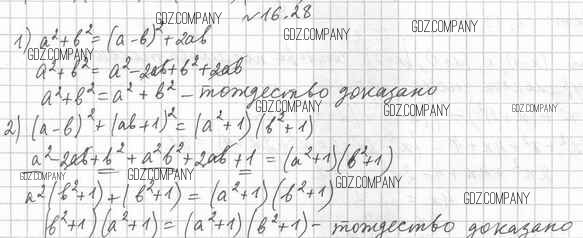 №16.28
1) a²+b² = (a-b)²+2ab
a²+b² = a²-2ab+b²+2ab
a²+b² = a²+b² - тождество доказано
2) (a-b)²+(ab+1)² = (a²+1)(b²+1)
a²-2ab+b²+a²b²+2ab+1 = (a²+1)(b²+1)
a²(b²+1)+(b²+1) = (a²+1)(b²+1)
(b²+1)(a²+1) = (a²+1)(b²+1) - тождество доказано
GDZ.COMPANY
GDZ.COMPANY
GDZ.COMPANY
GDZ.COMPANY
GDZ.COMPANY
GDZ.COMPANY
GDZ.COMPANY
GDZ.COMPANY
GDZ.COMPANY
GDZ.COMPANY